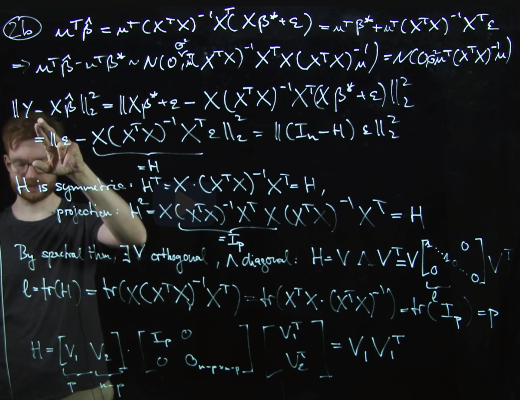 2b) uᵀβ̂ = uᵀ(XᵀX)⁻¹Xᵀ(Xβ* + ε) = uᵀβ* + uᵀ(XᵀX)⁻¹Xᵀε
⇒ uᵀβ̂ - uᵀβ* ~ N(0, σ²uᵀ(XᵀX)⁻¹XᵀX(XᵀX)⁻¹u) = N(0, σ²uᵀ(XᵀX)⁻¹u)
‖Y - Xβ̂‖₂² = ‖Xβ* + ε - X(XᵀX)⁻¹Xᵀ(Xβ* + ε)‖₂²
= ‖ε - X(XᵀX)⁻¹Xᵀε‖₂² = ‖(Iₙ - H)ε‖₂²
= H
H is symmetric: Hᵀ = X·(XᵀX)⁻¹Xᵀ = H,
projection: H² = X(XᵀX)⁻¹XᵀX(XᵀX)⁻¹Xᵀ = H
= Iₚ
By spectral thm, ∃ V orthogonal, Λ diagonal: H = VΛVᵀ = V[1 ⋱ 0 0 ⋱ 0]Vᵀ
ℓ
ℓ = tr(H) = tr(X(XᵀX)⁻¹Xᵀ) = tr(XᵀX·(XᵀX)⁻¹) = tr(Iₚ) = p
H = [V₁ V₂]·[Iₚ 0 0 0ₙ₋ₚₓₙ₋ₚ][V₁ᵀ V₂ᵀ] = V₁V₁ᵀ
p n-p